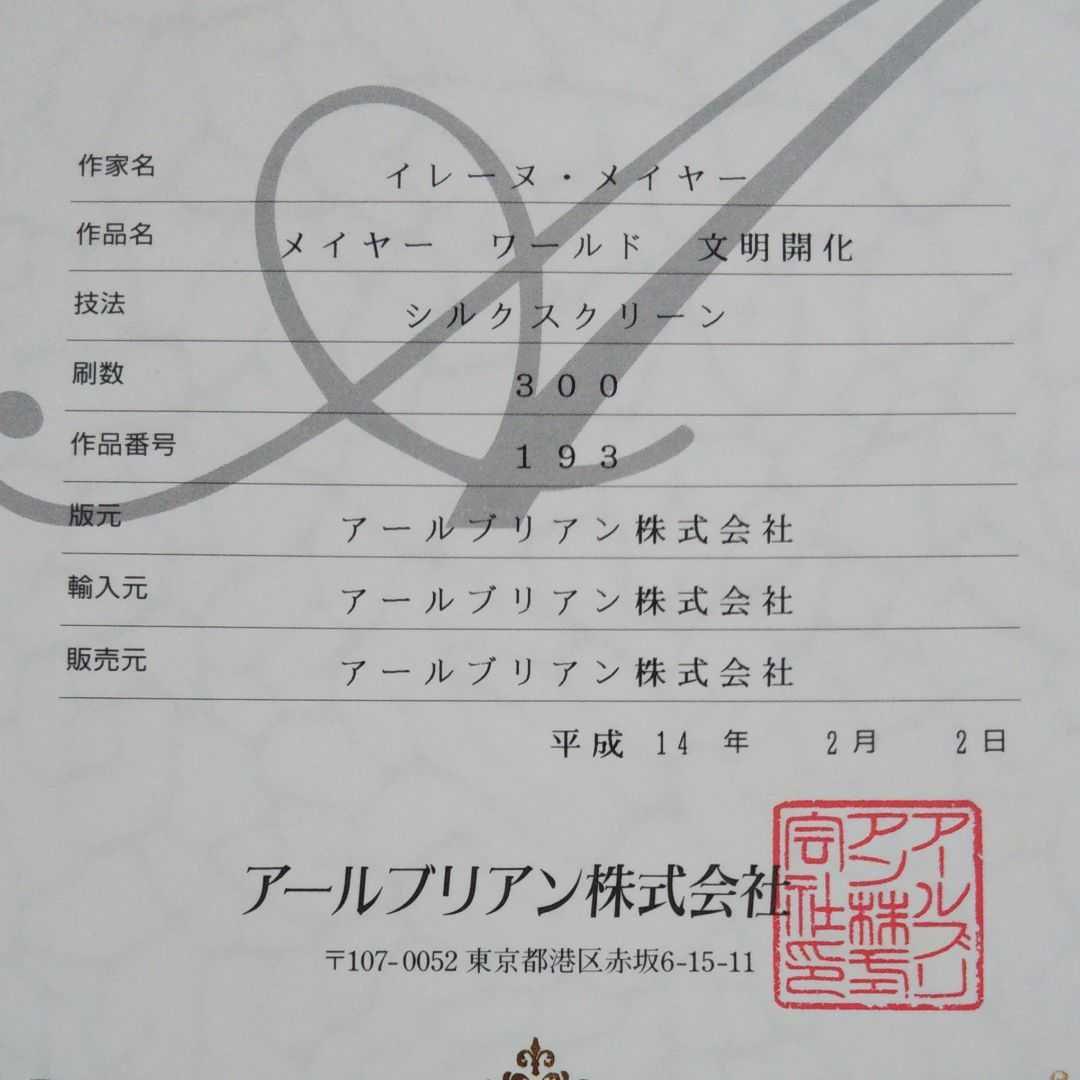 作家名 イレーヌ・メイヤー
作品名 メイヤー ワールド 文明開化
技法 シルクスクリーン
刷数 300
作品番号 193
版元 アールブリアン株式会社
輸入元 アールブリアン株式会社
販売元 アールブリアン株式会社
平成 14 年 2 月 2 日
アールブリアン株式会社
〒107-0052 東京都港区赤坂6-15-11
アールブリ
アン株式
会社印